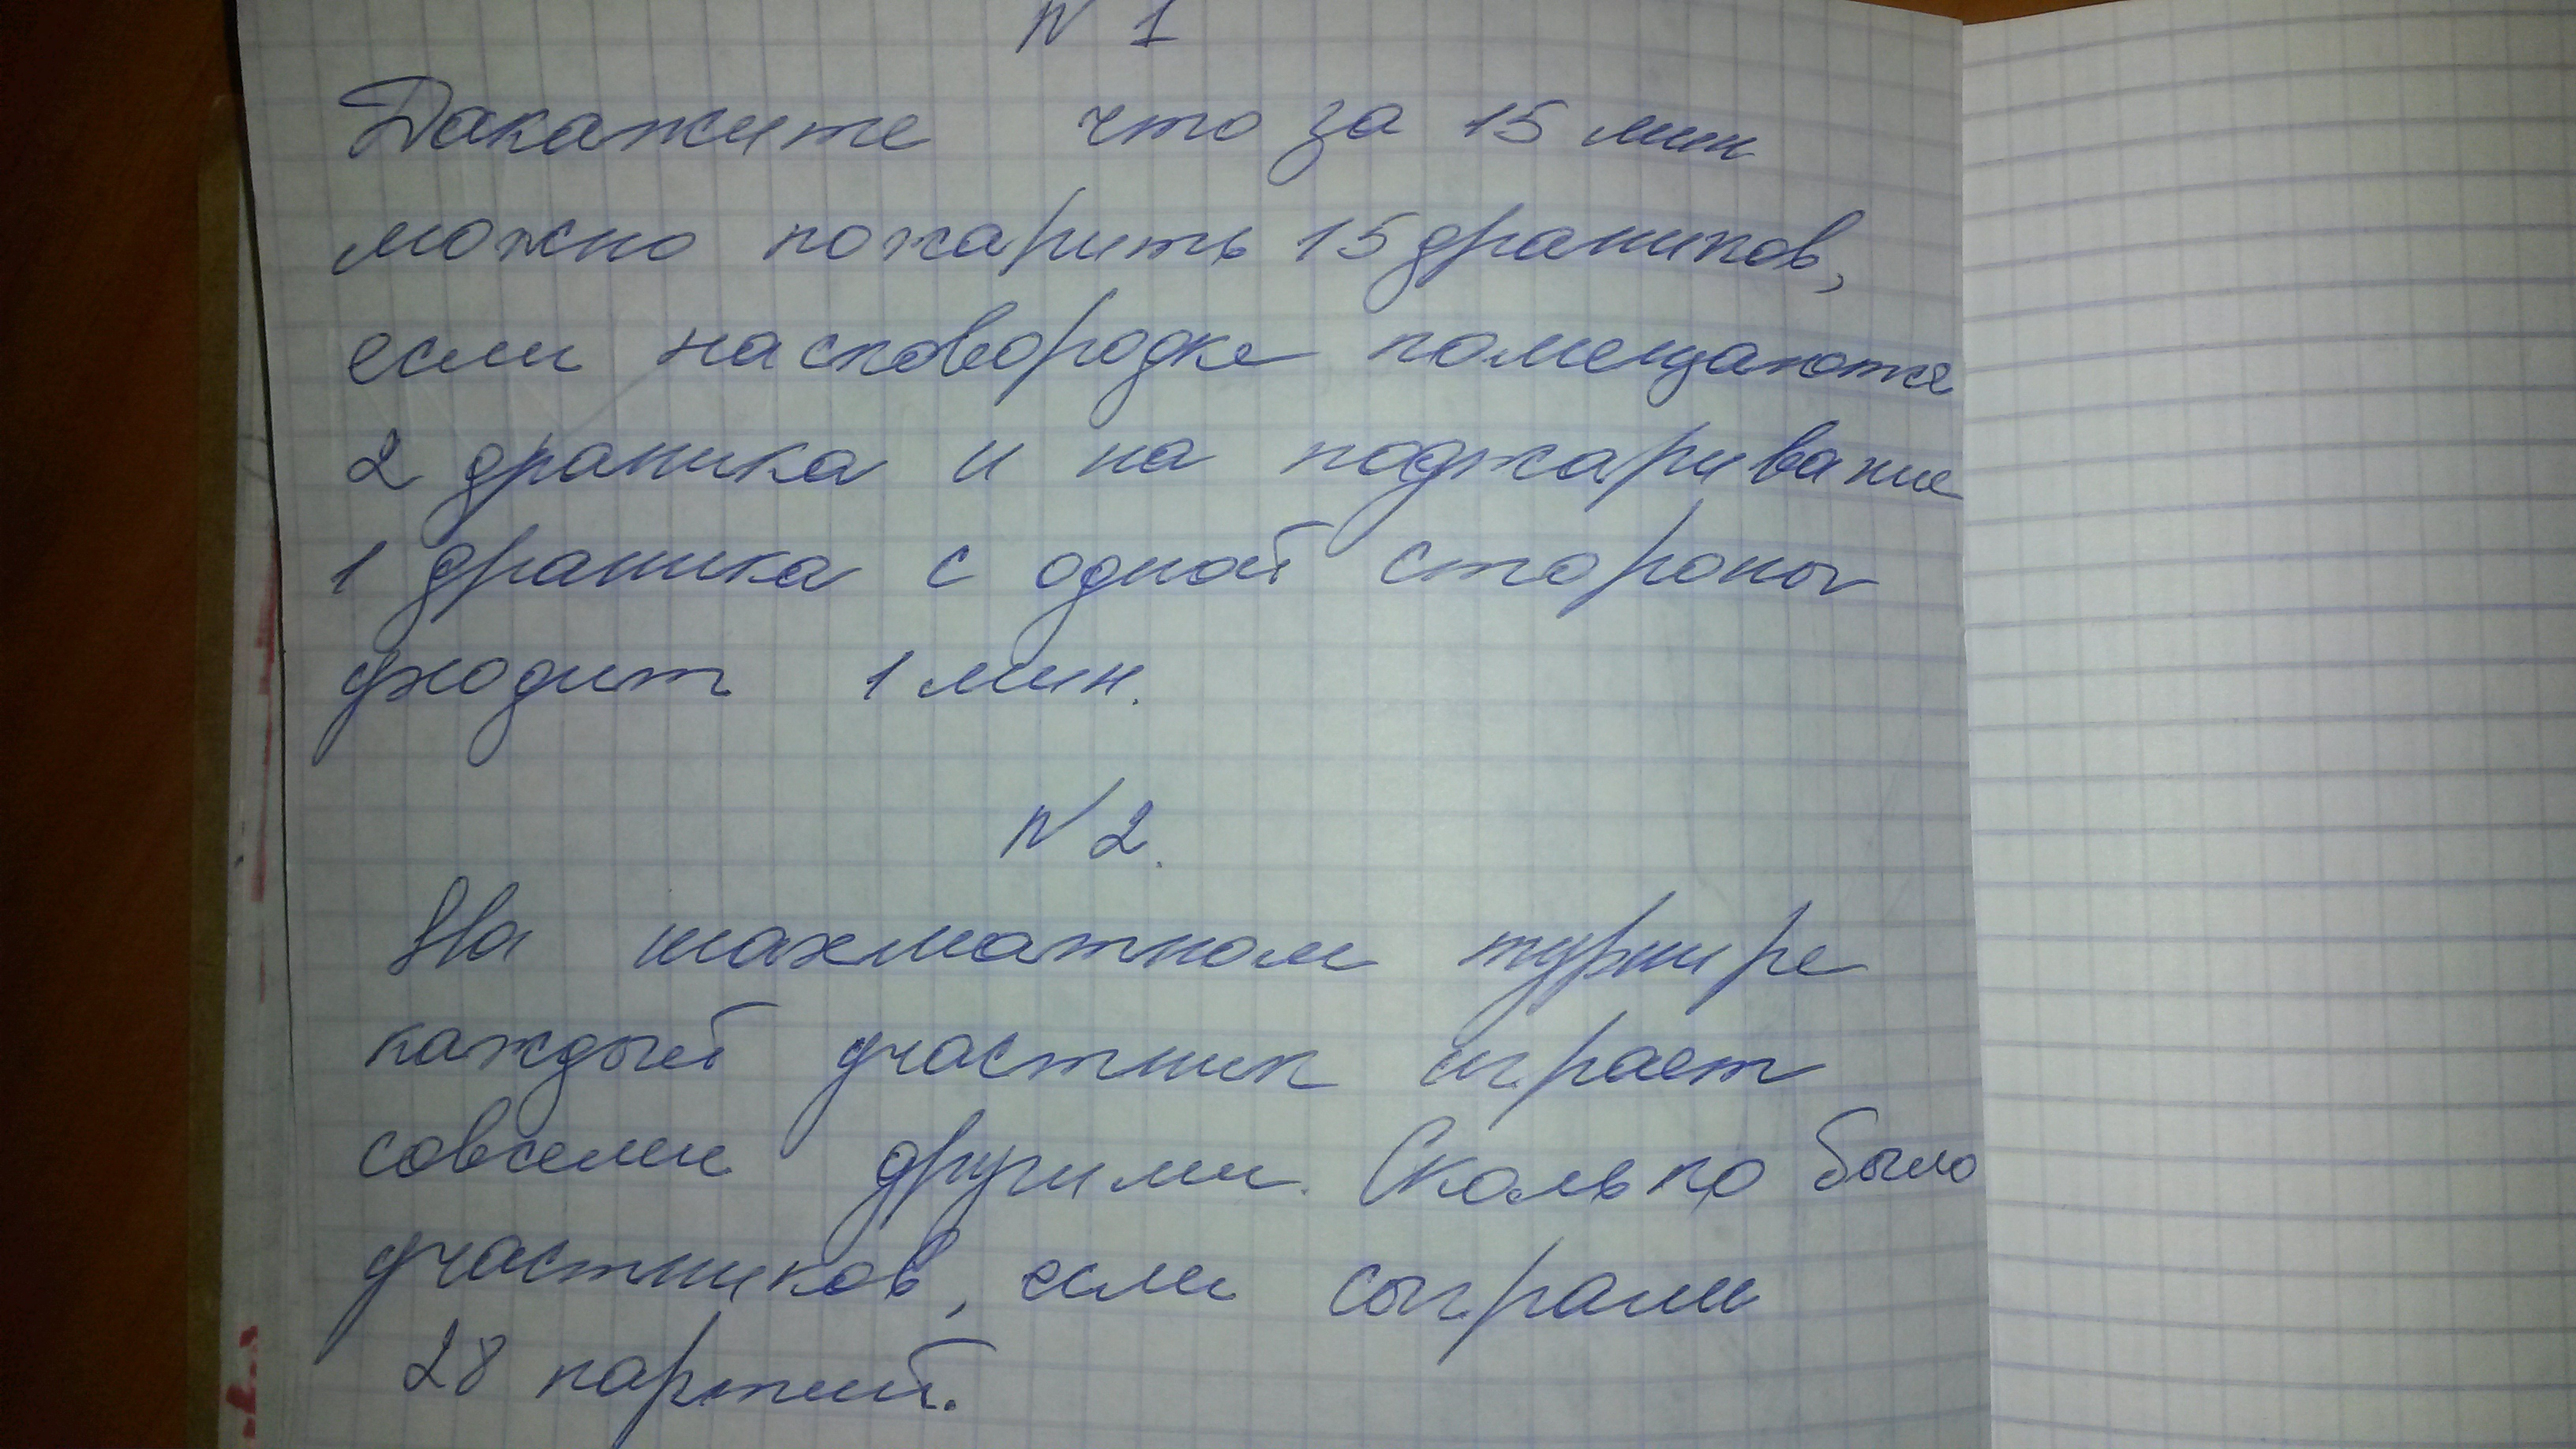 N 1
Дакажите что за 15 мин
можно пожарить 15 драников,
если на сковородке помещаются
2 драника и на поджаривание
1 драника с одной стороны
уходит 1 мин.
N 2.
На шахматном турнире
каждый участник играет
совсеми другими. Сколько было
участников, если сыграли
28 партий.